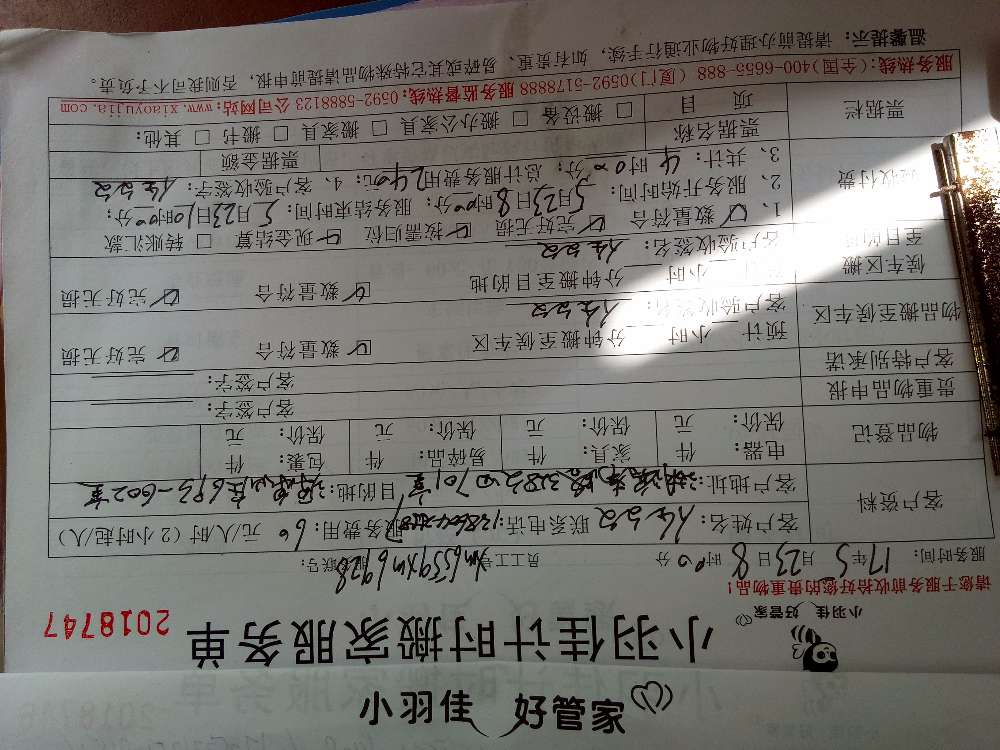 小羽佳 好管家
小羽佳 好管家
小羽佳计时搬家服务单
2018747
请您于服务前收拾好您的贵重物品！
服务时间：17年5月23日8时00分 员工工号 xm6559 xm6928
客户资料
客户姓名： 联系电话： 服务费用：60元/人/时（2小时起/人）
客户地址： 目的地：
物品登记
电器： 件 家具： 件 易碎品： 件 包裹： 件
保价： 元 保价： 元 保价： 元 保价： 元
贵重物品申报 客户签字：
客户特别承诺 客户签字：
物品搬至候车区
预计 小时 分钟搬至候车区 ☑数量符合 ☑完好无损
客户验收签名：
候车区搬至目的地
小时 分钟搬至目的地 ☑数量符合 ☑完好无损
客户验收签名：
验收付费
1、☑数量符合 ☑完好无损 ☑按需归位 ☑现金结算 □转账汇款
2、服务开始时间：5月23日8时00分；服务结束时间：5月23日10时00分；
3、共计：4时00分；总计服务费用240元；4、客户验收签字：
票据栏
票据名称 票据金额
项目 □搬设备 □搬办公家具 □搬家具 □搬书 □其他：
服务热线：(全国)400-6655-888 (厦门)0592-5178888 服务监督热线：0592-5888123 公司网站：www.xiaoyujia.com
温馨提示：请提前办理好物业通行手续，如有贵重、易碎或其它特殊物品请提前申报，否则我司不予负责。